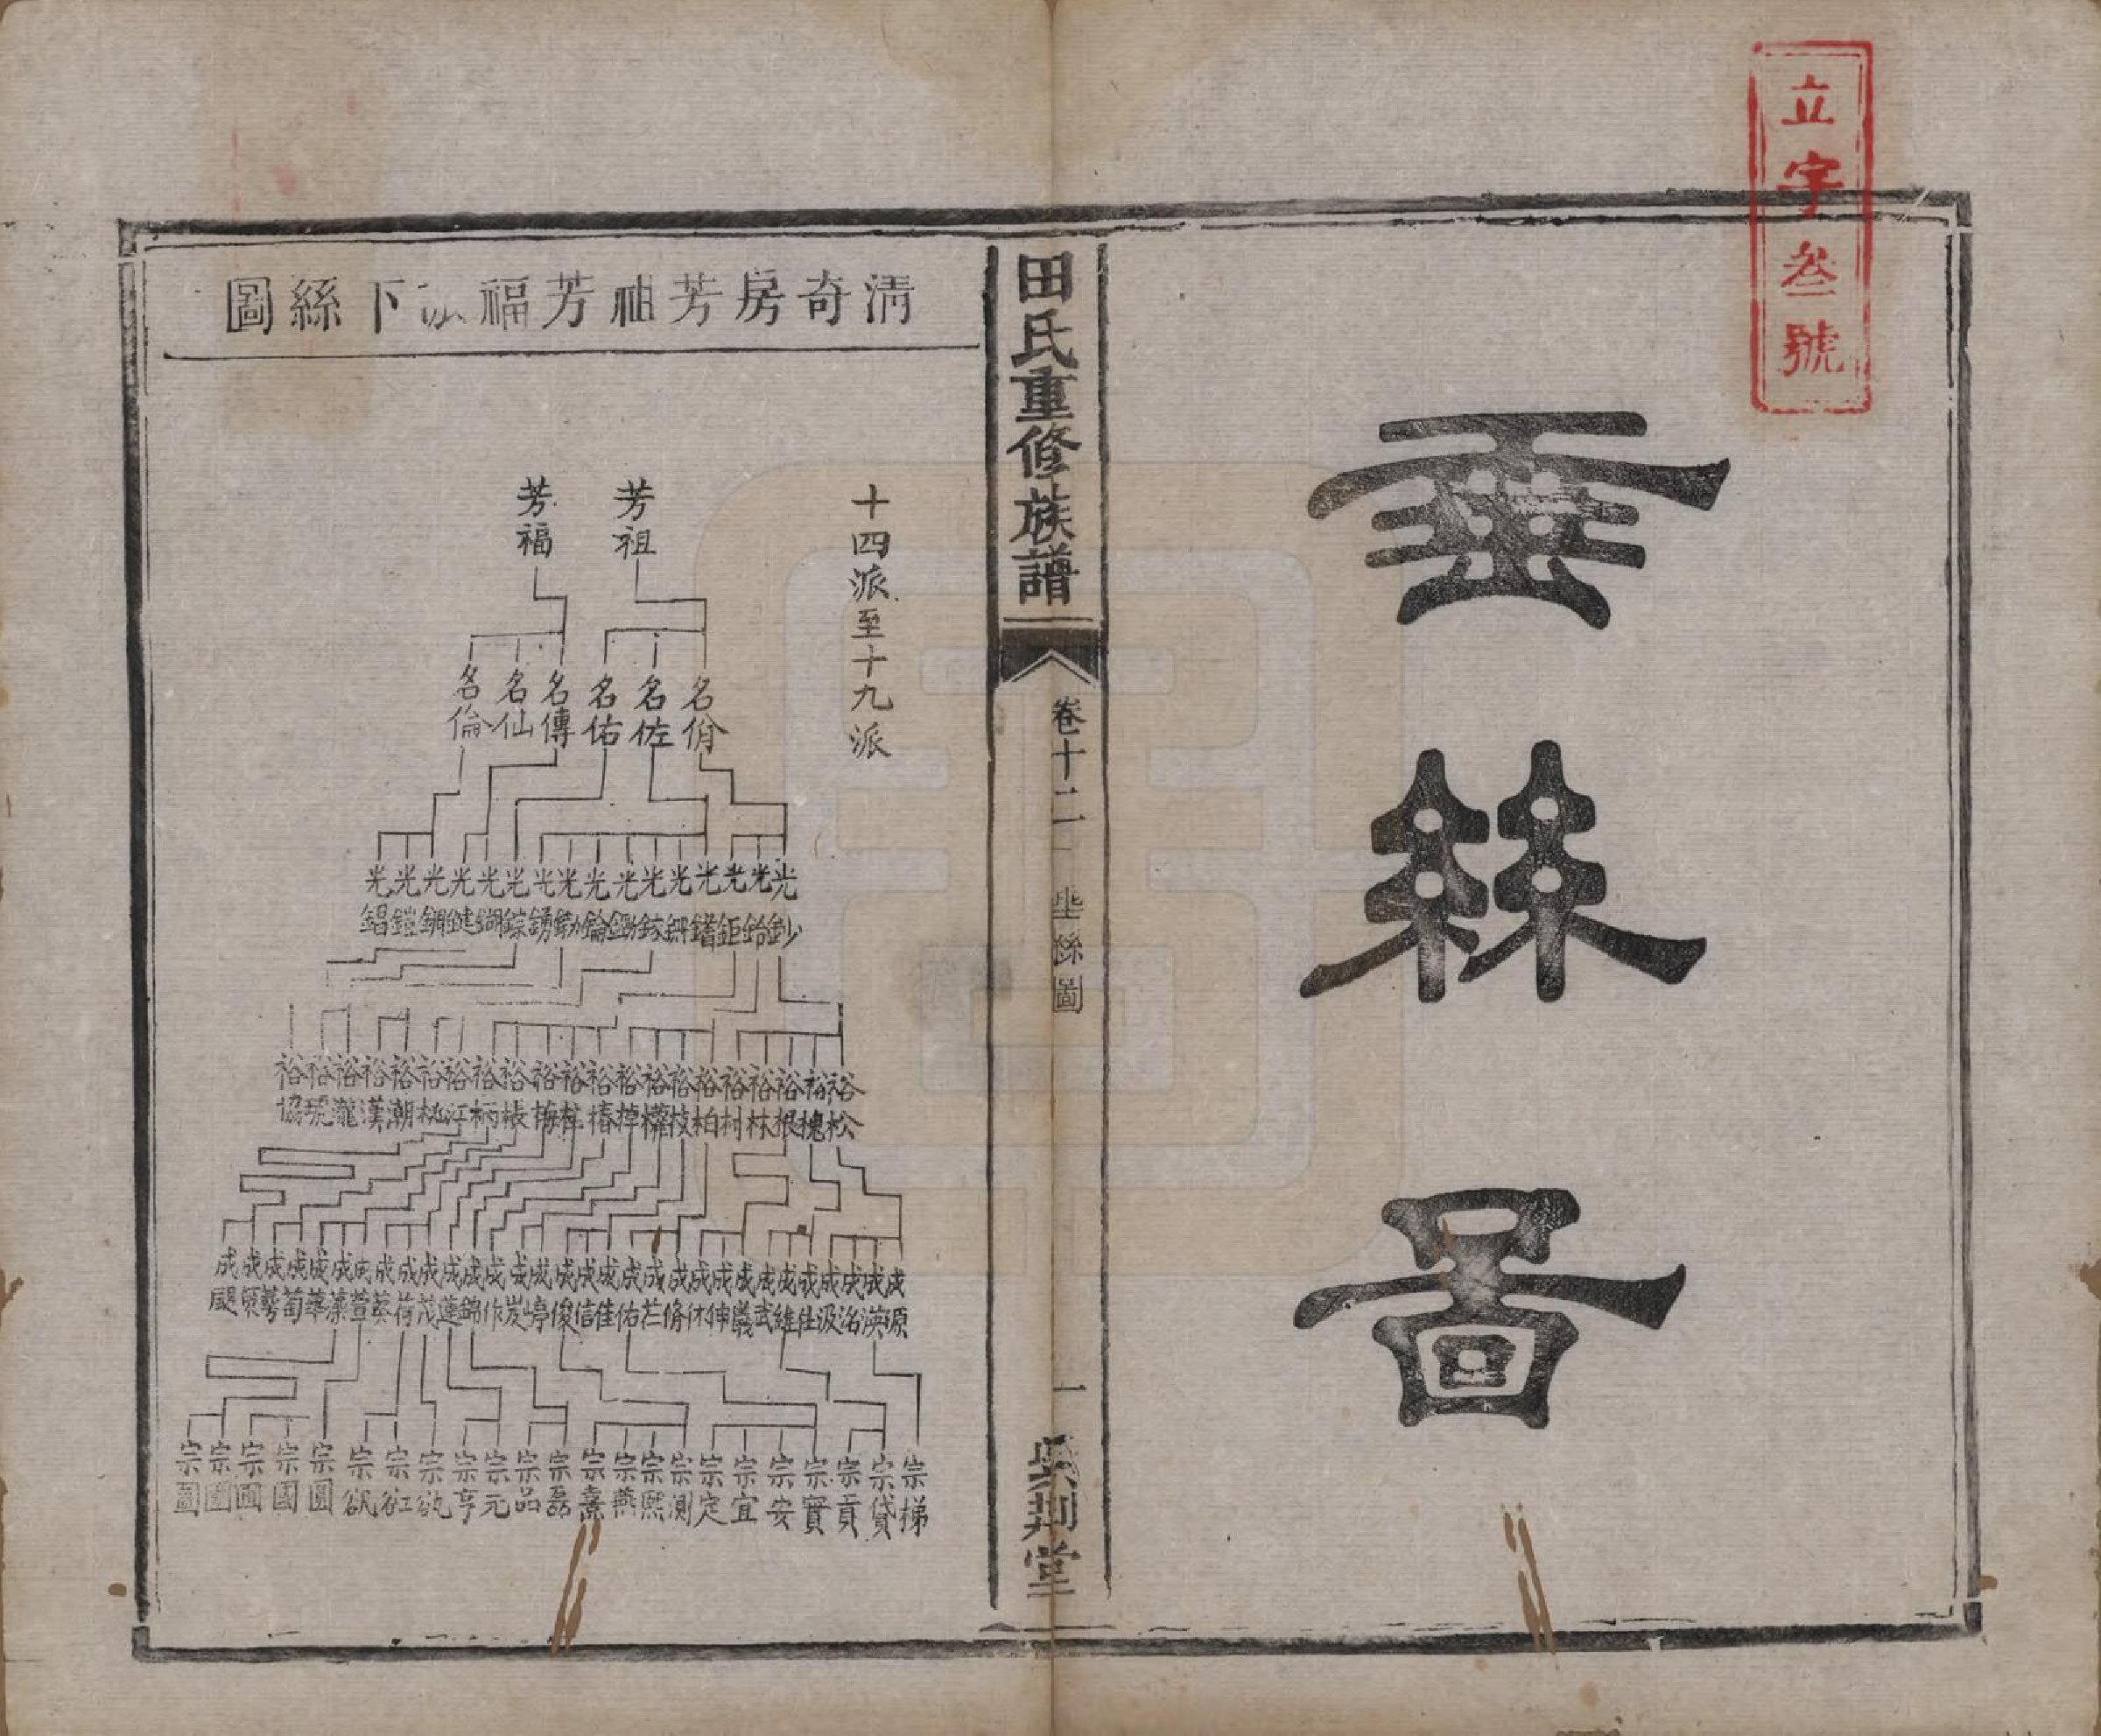 立字叁號
垂絲圖
田氏重修族譜
卷十二
垂絲圖
一
紫荆堂
清奇房芳祖芳福派下絲圖
十四派至十九派
芳祖 芳福
名佾 名佐 名佑 名傳 名仙 名倫
光鈔 光鉿 光鉅 光鐥 光 光 光鋤 光錀 光 光銹 光錝 光鍸 光鍵 光鋼 光鎧 光錩
裕松 裕槐 裕根 裕林 裕村 裕柏 裕枝 裕 裕樟 裕椿 裕梓 裕梅 裕棖 裕柄 裕江 裕桃 裕潮 裕漢 裕瀧 裕琥 裕協
成源 成渶 成洺 成汲 成仕 成維 成武 成儀 成伸 成休 成脩 成芒 成佑 成佳 成信 成俊 成崞 成炭 成作 成錦 成蓮 成茂 成荷 成葵 成萱 成藻 成華 成萄 成 成 成
宗梯 宗貸 宗貢 宗實 宗安 宗宜 宗定 宗測 宗熙 宗燕 宗熹 宗磊 宗品 宗元 宗亨 宗 宗 宗 宗圓 宗國 宗 宗 宗圖